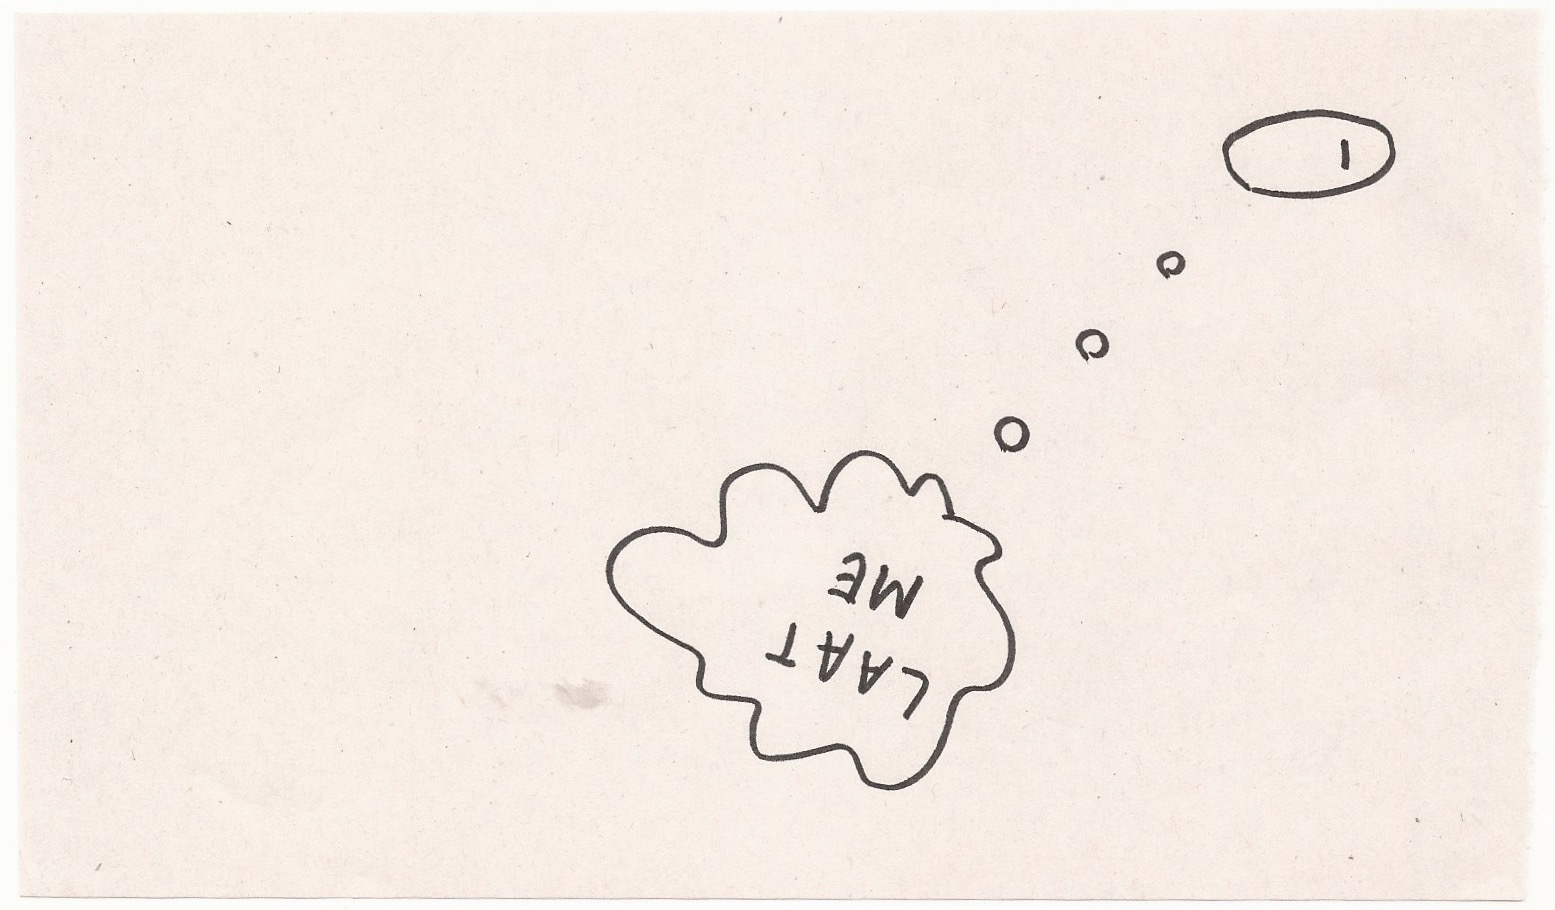 LAAT
ME